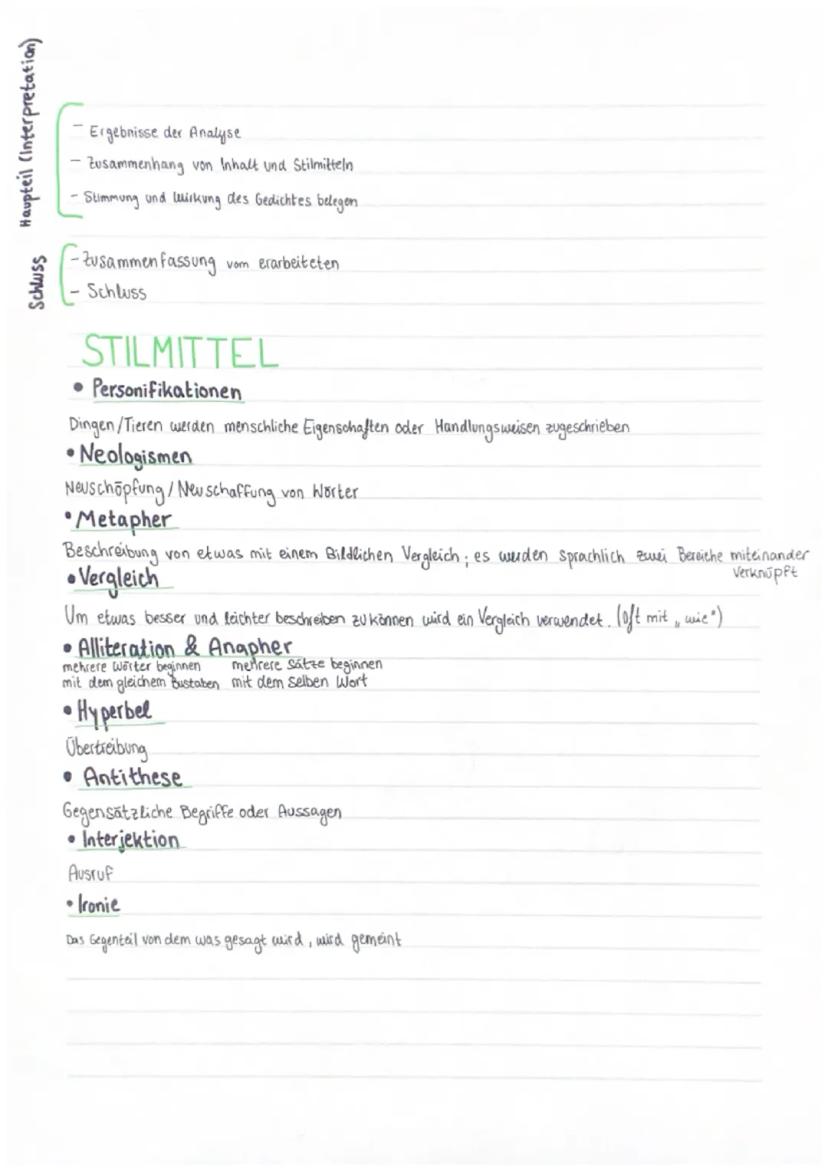 Haupteil (Interpretation)
- Ergebnisse der Analyse
- Zusammenhang von Inhalt und Stilmitteln
- Stimmung und Wirkung des Gedichtes belegen
Schluss
- Zusammenfassung vom erarbeiteten
- Schluss
STILMITTEL
• Personifikationen
Dingen/Tieren werden menschliche Eigenschaften oder Handlungsweisen zugeschrieben
• Neologismen
Neuschöpfung/Neuschaffung von Wörter
• Metapher
Beschreibung von etwas mit einem Bildlichen Vergleich; es werden sprachlich zwei Bereiche miteinander
verknüpft
• Vergleich
Um etwas besser und leichter beschreiben zu können wird ein Vergleich verwendet. (Oft mit „wie")
• Alliteration & Anapher
mehrere Wörter beginnen mehrere Sätze beginnen
mit dem gleichem Bustaben mit dem selben Wort
• Hyperbel
Übertreibung
• Antithese
Gegensätzliche Begriffe oder Aussagen
• Interjektion
Ausruf
• Ironie
Das Gegenteil von dem was gesagt wird, wird gemeint